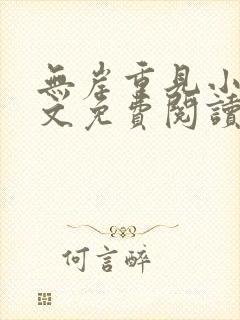 無岸重見小
文免費閱讀
何言醉